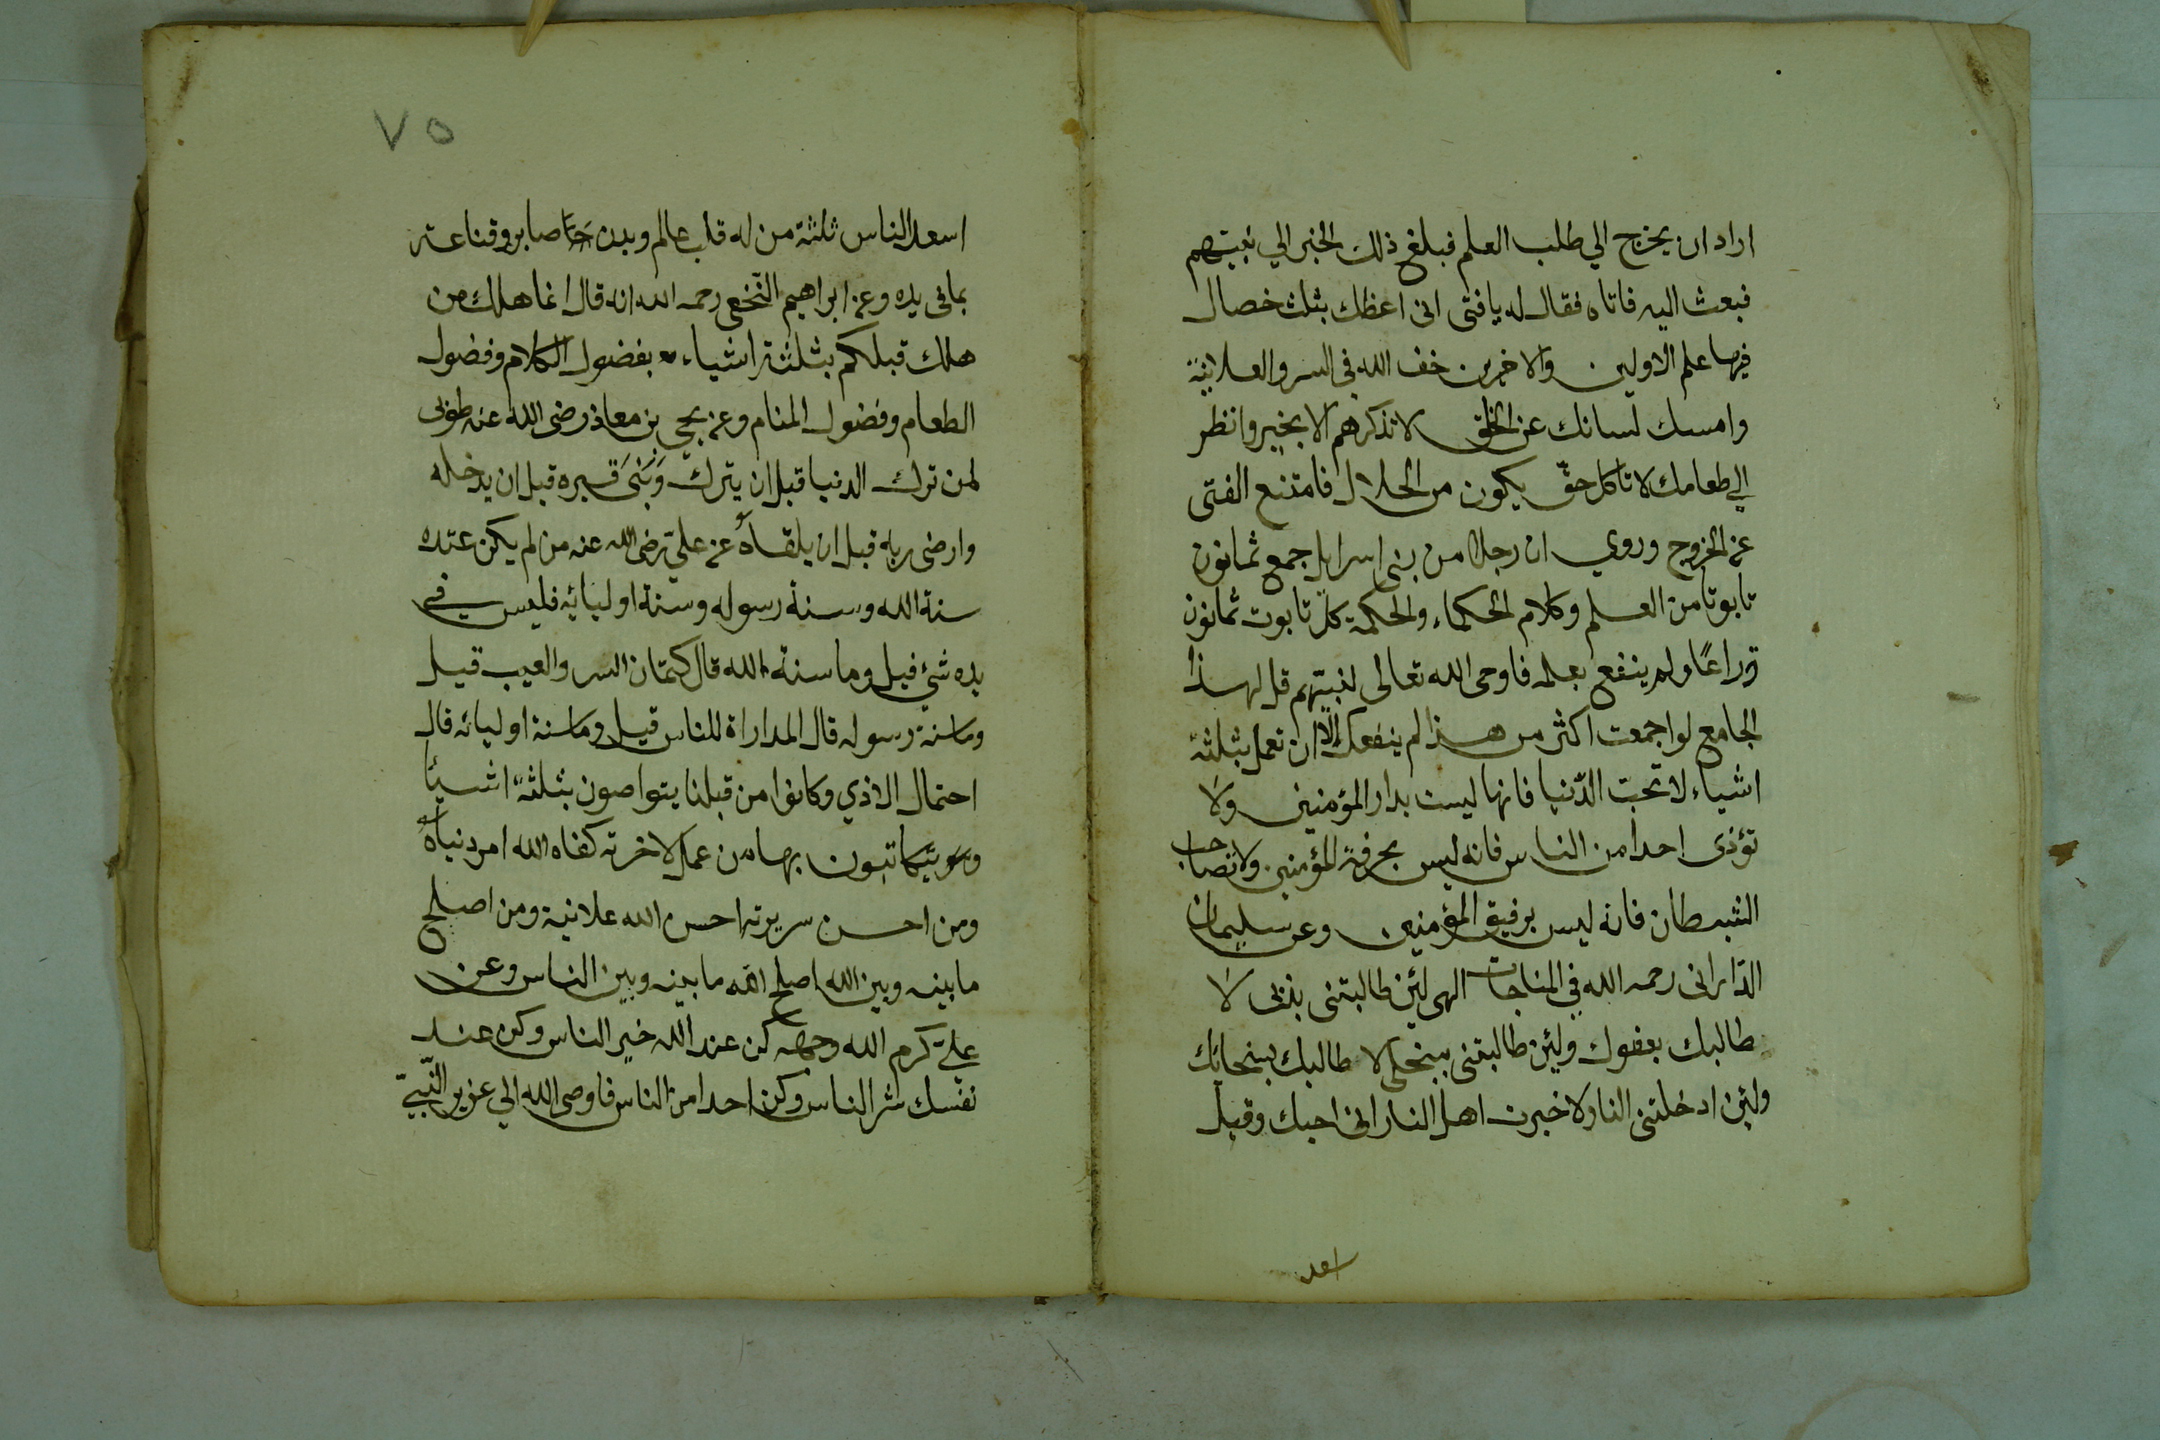 اراد ان يخرج الي طلب العلم فبلغ ذلك الخبر الي نبيهم
فبعث اليه فاتاه فقال له يا فتى انى اعظك بثلث خصال
فيها علم الاولين والاخرين خف الله فى السر والعلانية
وامسك لسانك عن الخلق لا تذكرهم الا بخير وانظر
الي طعامك لا تاكل حتى يكون من الحلال فامتنع الفتى
عن الخروج وروي ان رجلا من بنى اسرايل جمع ثمانون
تابوتا من العلم وكلام الحكماء والحكمة كل تابوت ثمانون
ذراعًا ولم ينفع بعلمه فاوحى الله تعالى لنبيّهم قل لهذا
الجامع لو اجمعت اكثر من هذا لم ينفعك الا ان تعمل بثلثة
اشياء لا تحب الدّنيا فانها ليست بدار المؤمنين ولا
تؤذى احدا من الناس فانه ليس بحرفة المؤمنين ولا تصاحب
الشيطان فانه ليس برفيق المؤمنين وعن سليمان
الدّارانى رحمه الله في المناجات الهى لئن طالبتنى بذنبى لا
طالبك بعفوك ولئن طالبتنى ببخلى لا طالبك بسخائك
ولئن ادخلتنى النار لاخبرن اهل النار انى احبك وقيل
اسعد
٧٥
اسعد الناس ثلثة من له قلب عالم وبدن صابر وقناعة
بما فى يده وعن ابراهيم النّخعى رحمه الله انه قال انما هلك من
هلك قبلكم بثلثة اشياء بفضول الكلام وفضول
الطعام وفضول المنام وعن يحي بن معاذ رضى الله عنه طوبى
لمن ترك الدنيا قبل ان يترك وَبَنَى قبره قبل ان يدخله
وارضى ربه قبل ان يلقاه عن عليّ رضى الله عنه من لم يكن عنده
سنة الله وسنة رسوله وسنة اوليائه فليس في
يده شئ قيل وما سنة الله قال كتمان السر والعيب قيل
وما سنة رسوله قال المداراة للناس قيل وما سنة اوليائه قال
احتمال الاذي وكانوا من قبلنا يتواصون بثلثة اشيئًا
ويتكاتبون بها من عمل لاخرته كفاه الله امر دنياه
ومن احسن سريرته احسن الله علانية ومن اصلح
ما بينه وبين الله اصلح الله ما بينه وبين الناس وعن
عليّ كرم الله وجهه كن عند الله خير الناس وكن عند
نفسك شر الناس وكن احدا من الناس فاوصى الله الي عزير النّبيّ